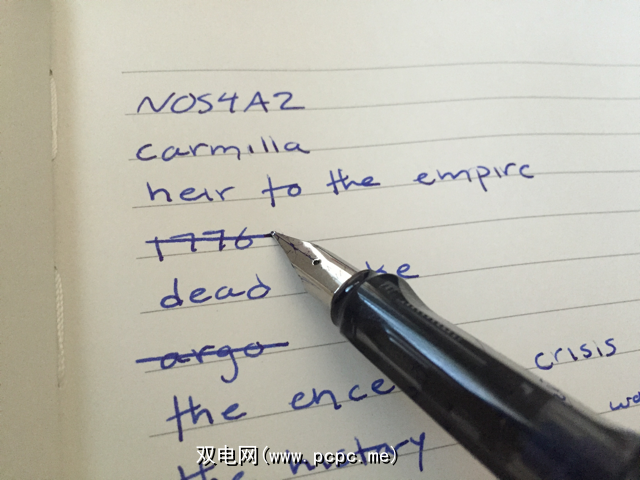 NOS4A2
carmilla
heir to the empire
1776
dead
argo
crisis
the
the history
双电网(www.pcpc.me)